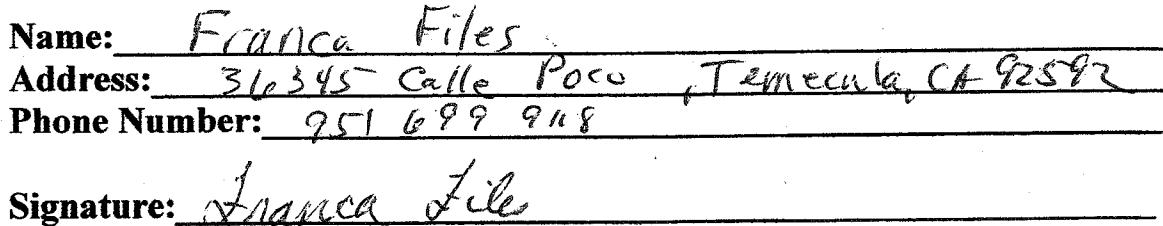 Name: Franca Files
Address: 36345 Calle Poco, Temecula, CA 92592
Phone Number: 951 699 9118
Signature: Franca Files